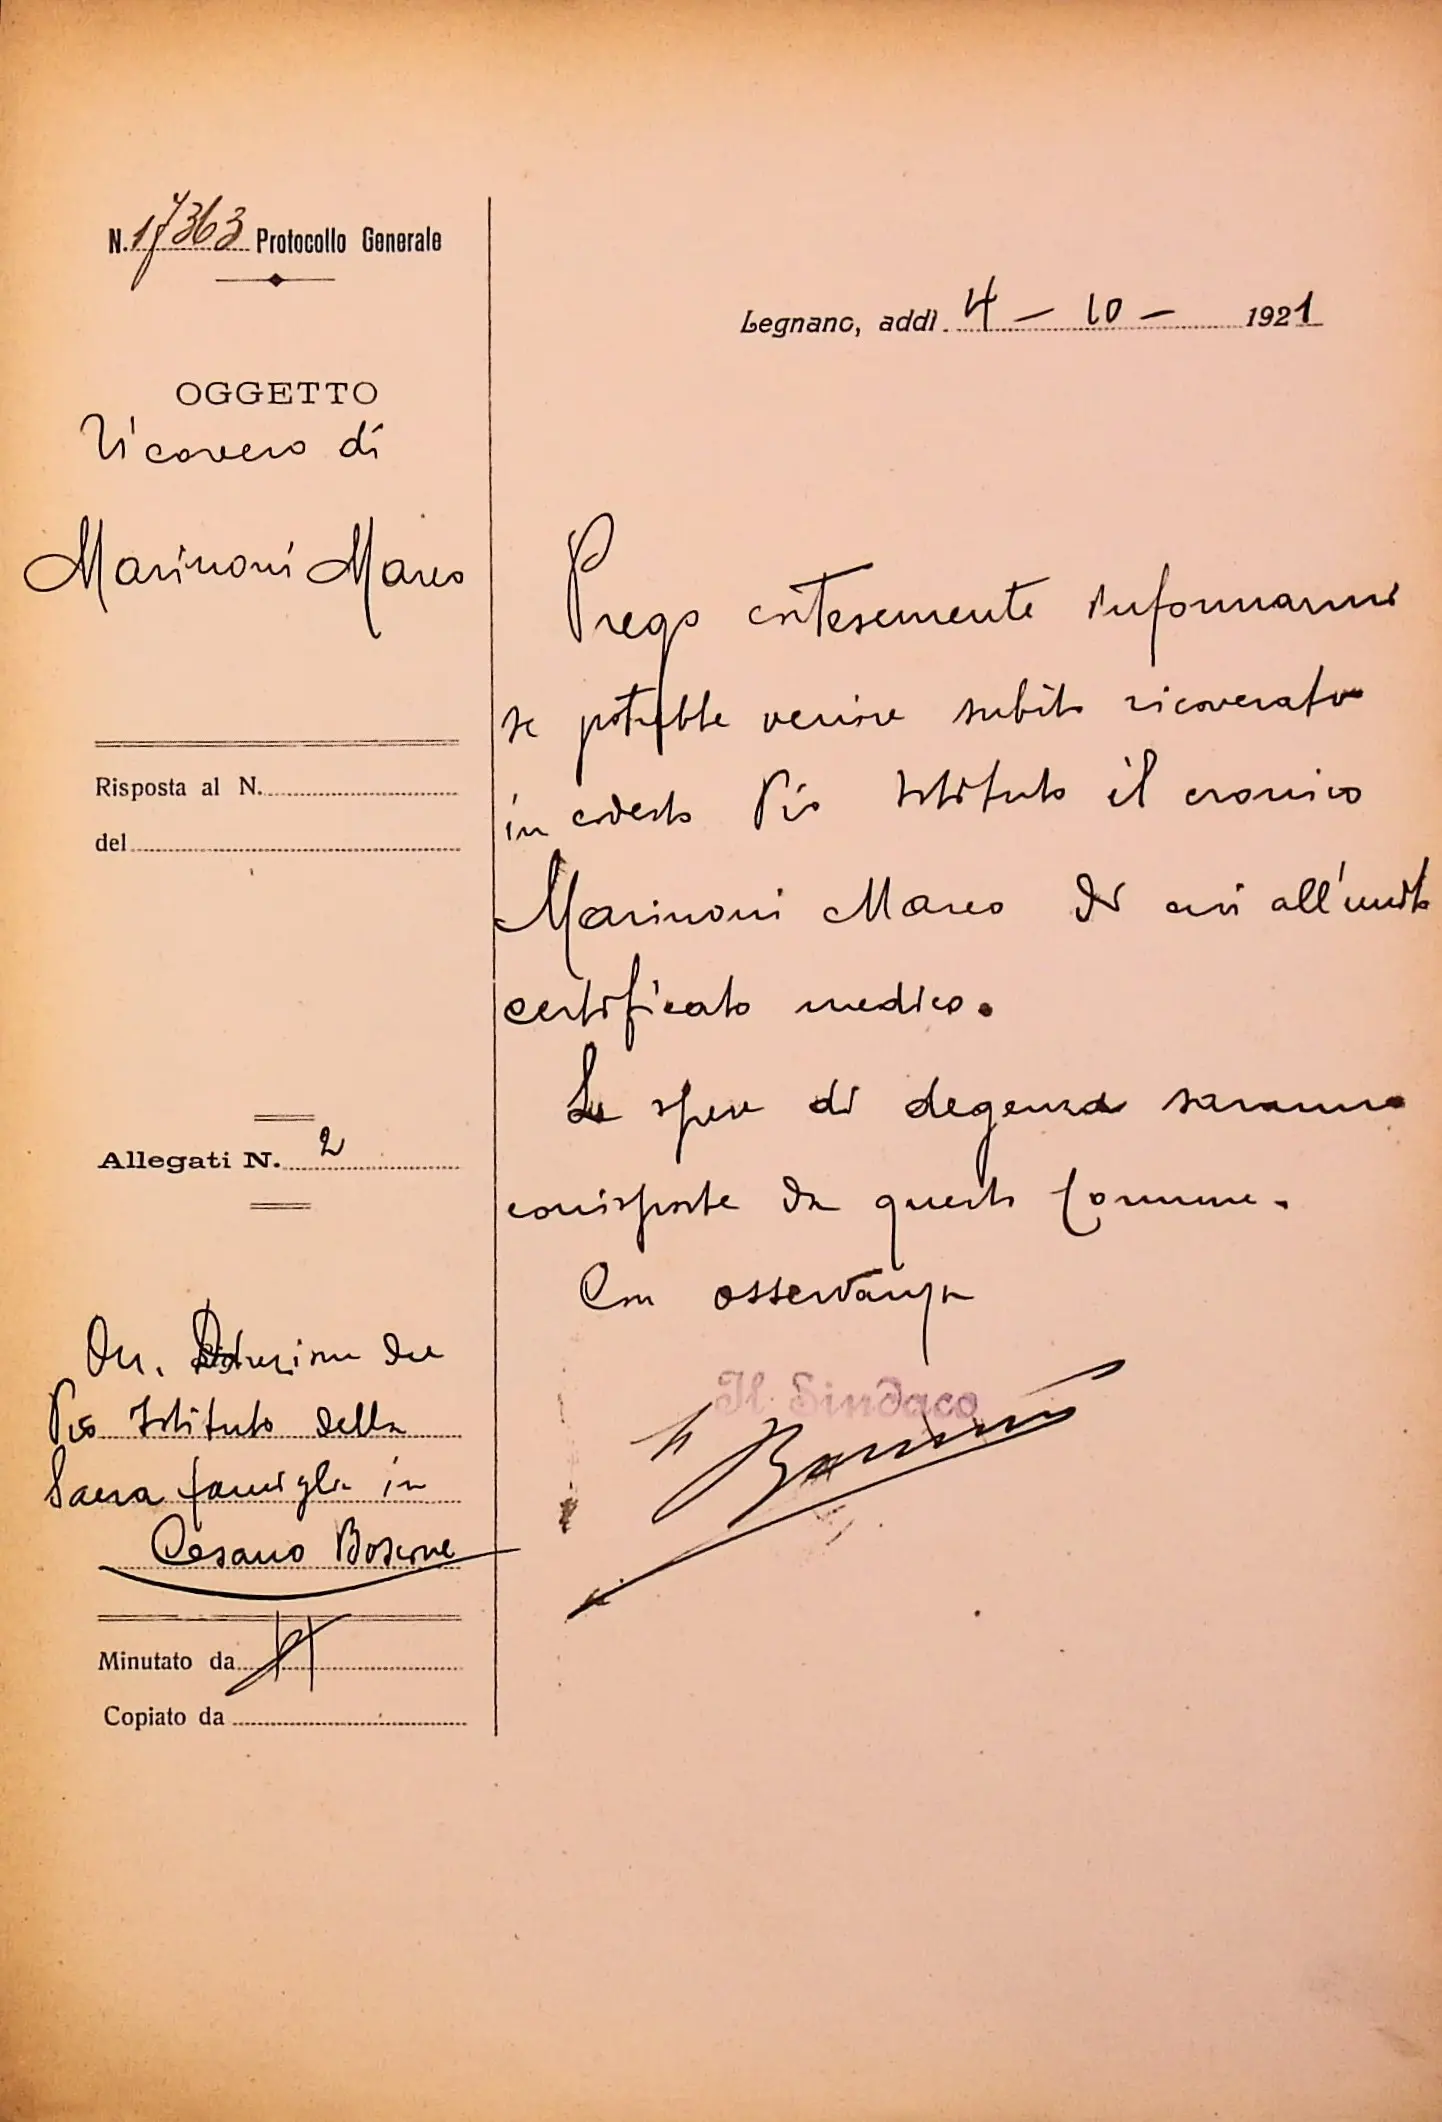 N. 17363 Protocollo Generale
Legnano, addì 4 - 10 - 1921
OGGETTO
Ricovero di
Marinoni Marco
Risposta al N.
del
Allegati N. 2
On. Direzione del
Pio Istituto della
Sacra famiglia in
Cesano Boscone
Minutato da
Copiato da
Prego cortesemente informarmi
se potrebbe venire subito ricoverato
in codesto Pio Istituto il cronico
Marinoni Marco di cui all'unito
certificato medico.
Le spese di degenza saranno
corrisposte da questo Comune.
Con osservanza
Il Sindaco